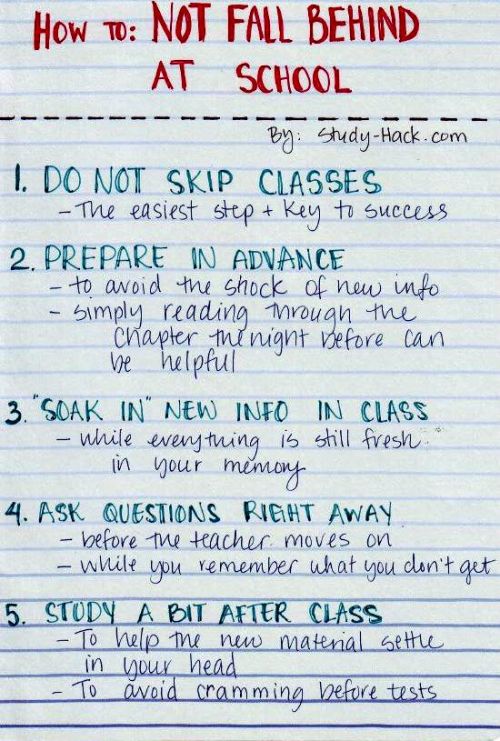 How to: NOT FALL BEHIND
AT SCHOOL
By: Study-Hack.com
1. DO NOT SKIP CLASSES
- The easiest step + key to success
2. PREPARE IN ADVANCE
- to avoid the shock of new info
- simply reading through the
chapter the night before can
be helpful
3. "SOAK IN" NEW INFO IN CLASS
- while everything is still fresh
in your memory
4. ASK QUESTIONS RIGHT AWAY
- before the teacher moves on
- while you remember what you don't get
5. STUDY A BIT AFTER CLASS
- To help the new material settle
in your head
- To avoid cramming before tests